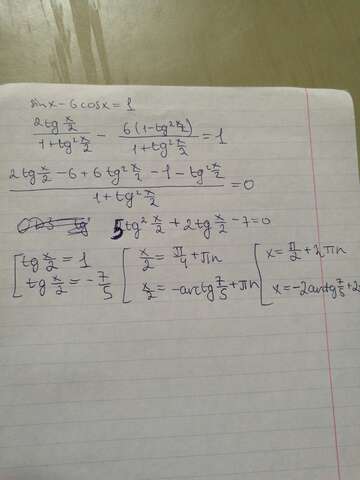 sinx - 6cosx = 1
2tg x/2 / 1+tg² x/2 - 6(1-tg² x/2) / 1+tg² x/2 = 1
2tg x/2 - 6 + 6tg² x/2 - 1 - tg² x/2 / 1+tg² x/2 = 0
5tg² x/2 + 2tg x/2 - 7 = 0
[tg x/2 = 1 [x/2 = π/4 + πn [x = π/2 + 2πn
tg x/2 = -7/5 x/2 = -arctg 7/5 + πn x = -2arctg 7/5 + 2